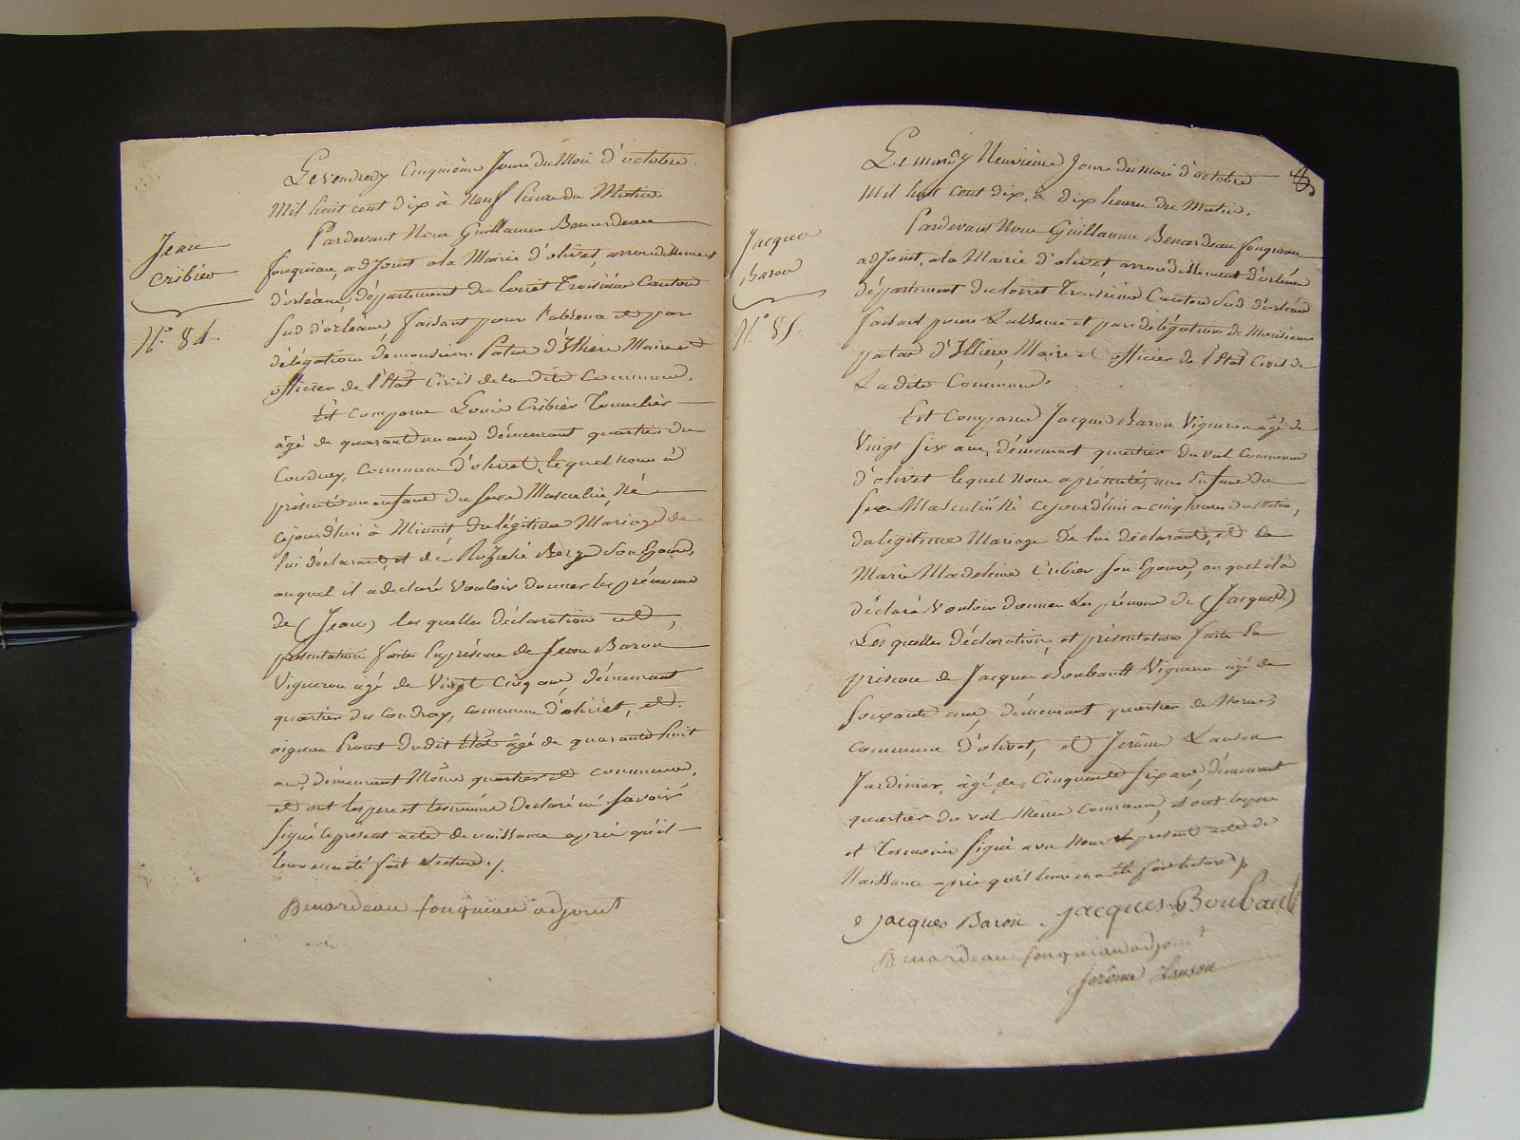 Le vendredy Cinquième Jour du Mois d'octobre
Mil huit cent dix à Neuf heure du Matin
Pardevant Nous Guillaume Benardeau
fouqueau, adjoint a la Mairie d'olivet, arrondissement
d'orléans, département du Loiret Troisième Canton
Sud d'orleans, faisant pour l'absence et par
délégation de monsieur Patas d'Illiers Maire et
officier de l'état Civil de la dite Commune.
Jean
Cribier
N.º 84.
Est comparu Louis Cribier Tonnelier
âgé de quarante un ans, démeurant quartier du
Coudray, Commune d'olivet, lequel nous à
présenté un enfant du Sexe Masculin, Né
cejourd'hui à Minuit, du légitime Mariage de
lui déclarant, et de Berge son Epouse,
auquel il a déclaré Vouloir donner les prénoms
de (Jean) les quelles déclaration et
présentation faites En présence de Jean Baron
Vigneron âgé de Vingt Cinq ans, démeurant
quartier du Coudray, commune d'olivet, et
aignan Proust dudit état âgé de quarante huit
ans, démeurant Même quartier et commune,
et ont les pere et témoins déclaré né Savoir
Signé le present acte de naissance après qu'il
leur en a été fait Lecture ./.
Benardeau fouqueau adjoint
Le mardy Neuvième Jour du mois d'octobre
Mil huit cent dix, à dix heures du Matin.
Pardevant Nous Guillaume Benardeau fouqueau
adjoint, a la Mairie d'olivet, arrondissement d'orléans
département du Loiret Troisième Canton Sud d'orléans
faisant pour L'absence et par délégation de Monsieur
patas d'Illiers, Maire et officier de l'état Civil de
La dite Commune.
Jacques
Baron
N.º 85.
Est Comparu Jacques Baron Vigneron âgé de
Vingt Six ans, démeurant quartier du val Commune
d'olivet lequel Nous a présenté, un Enfant du
Sexe Masculin Né cejourd'hui a cinq heures du Matin,
du légitime Mariage de lui déclarant, et de
Marie Madeleine Cribier son Epouse, auquel il à
déclaré Vouloir donner Les prénoms de (Jacques)
Les quelles déclaration, et présentation faites En
présence de Jacques Boubault Vigneron âgé de
Soixante ans, démeurant quartier de
commune d'olivet, et Jérôme Lanson
Jardinier, âgé de Cinquante Six ans, démeurant
quartier du val Même commune, et ont les pere
et Témoins Signé avec Nous le present acte de
Naissance après qu'il leur en a été fait lecture ./.
Jacques Baron . jacques Boubault
Benardeau fouqueau adjoint
jerôme Lanson